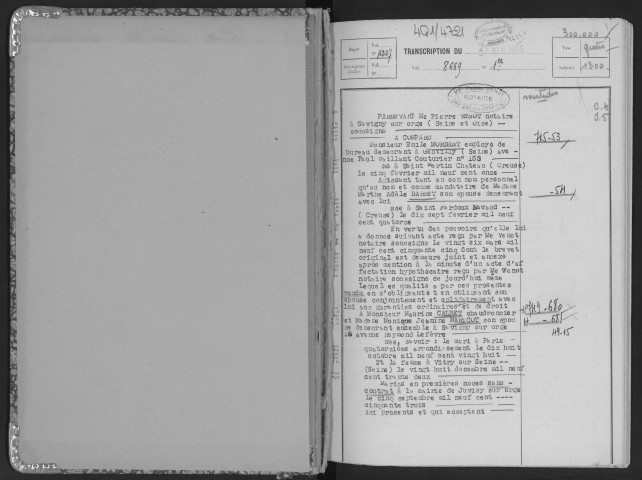 4Q1/4721
300.000
Dépôt
Vol.
N°
TRANSCRIPTION DU
Vol. 8669 N° 1er
Taxe gratis
Salaires 1300
NOTAIRE
PARDEVANT Me Pierre VENOT notaire
à Savigny sur orge ( Seine et Oise) --
soussigné
A COMPARU
Monsieur Emile employé de
bureau demeurant à Gentilly ( Seine) ave
nue Paul Vaillant Couturier n° 153
Né à Saint Martin Chateau ( Creuse)
Le cinq février mil neuf cent onze
Agissant tant en son nom personnel
qu'au nom et comme mandataire de Madame
Marthe Adèle son épouse demeurant
avec lui
née à Saint Pardoux Lavaud --
( Creuse) le dix sept février mil neuf
cent quatorze
En vertu des pouvoirs qu'elle lui
a donnés suivant acte reçu par Me Venot
notaire soussigné le vingt six mars mil
neuf cent cinquante cinq dont le brevet
original est demeuré joint et annexé
après mention à la minute d'un acte d'af
fectation hypothécaire reçu par Me Venot
notaire soussigné ce jourd'hui même
Lequel es qualité a par ces présentes
vendu en s'obligeant et en obligeant son
épouse conjointement et solidairement avec
lui aux garanties ordinaires et de droit
A Monsieur Maurice CALBET chaudronnier
et Madame Monique Jeanine son épou
se demeurant ensemble à Savigny sur orge
avenue Raymond Lefèvre
Nés, savoir : le mari à Paris -
quatorzième arrondissement le dix huit
octobre mil neuf cent vingt huit
Et la femme à Vitry sur Seine --
(Seine) le vingt huit décembre mil neuf
cent trente deux
Mariés en premières noces sans -
contrat à la mairie de Juvisy sur orge
le cinq septembre mil neuf cent ----
cinquante trois
Ici présents et qui acceptent
715-53
-511
-680
-681
49-15